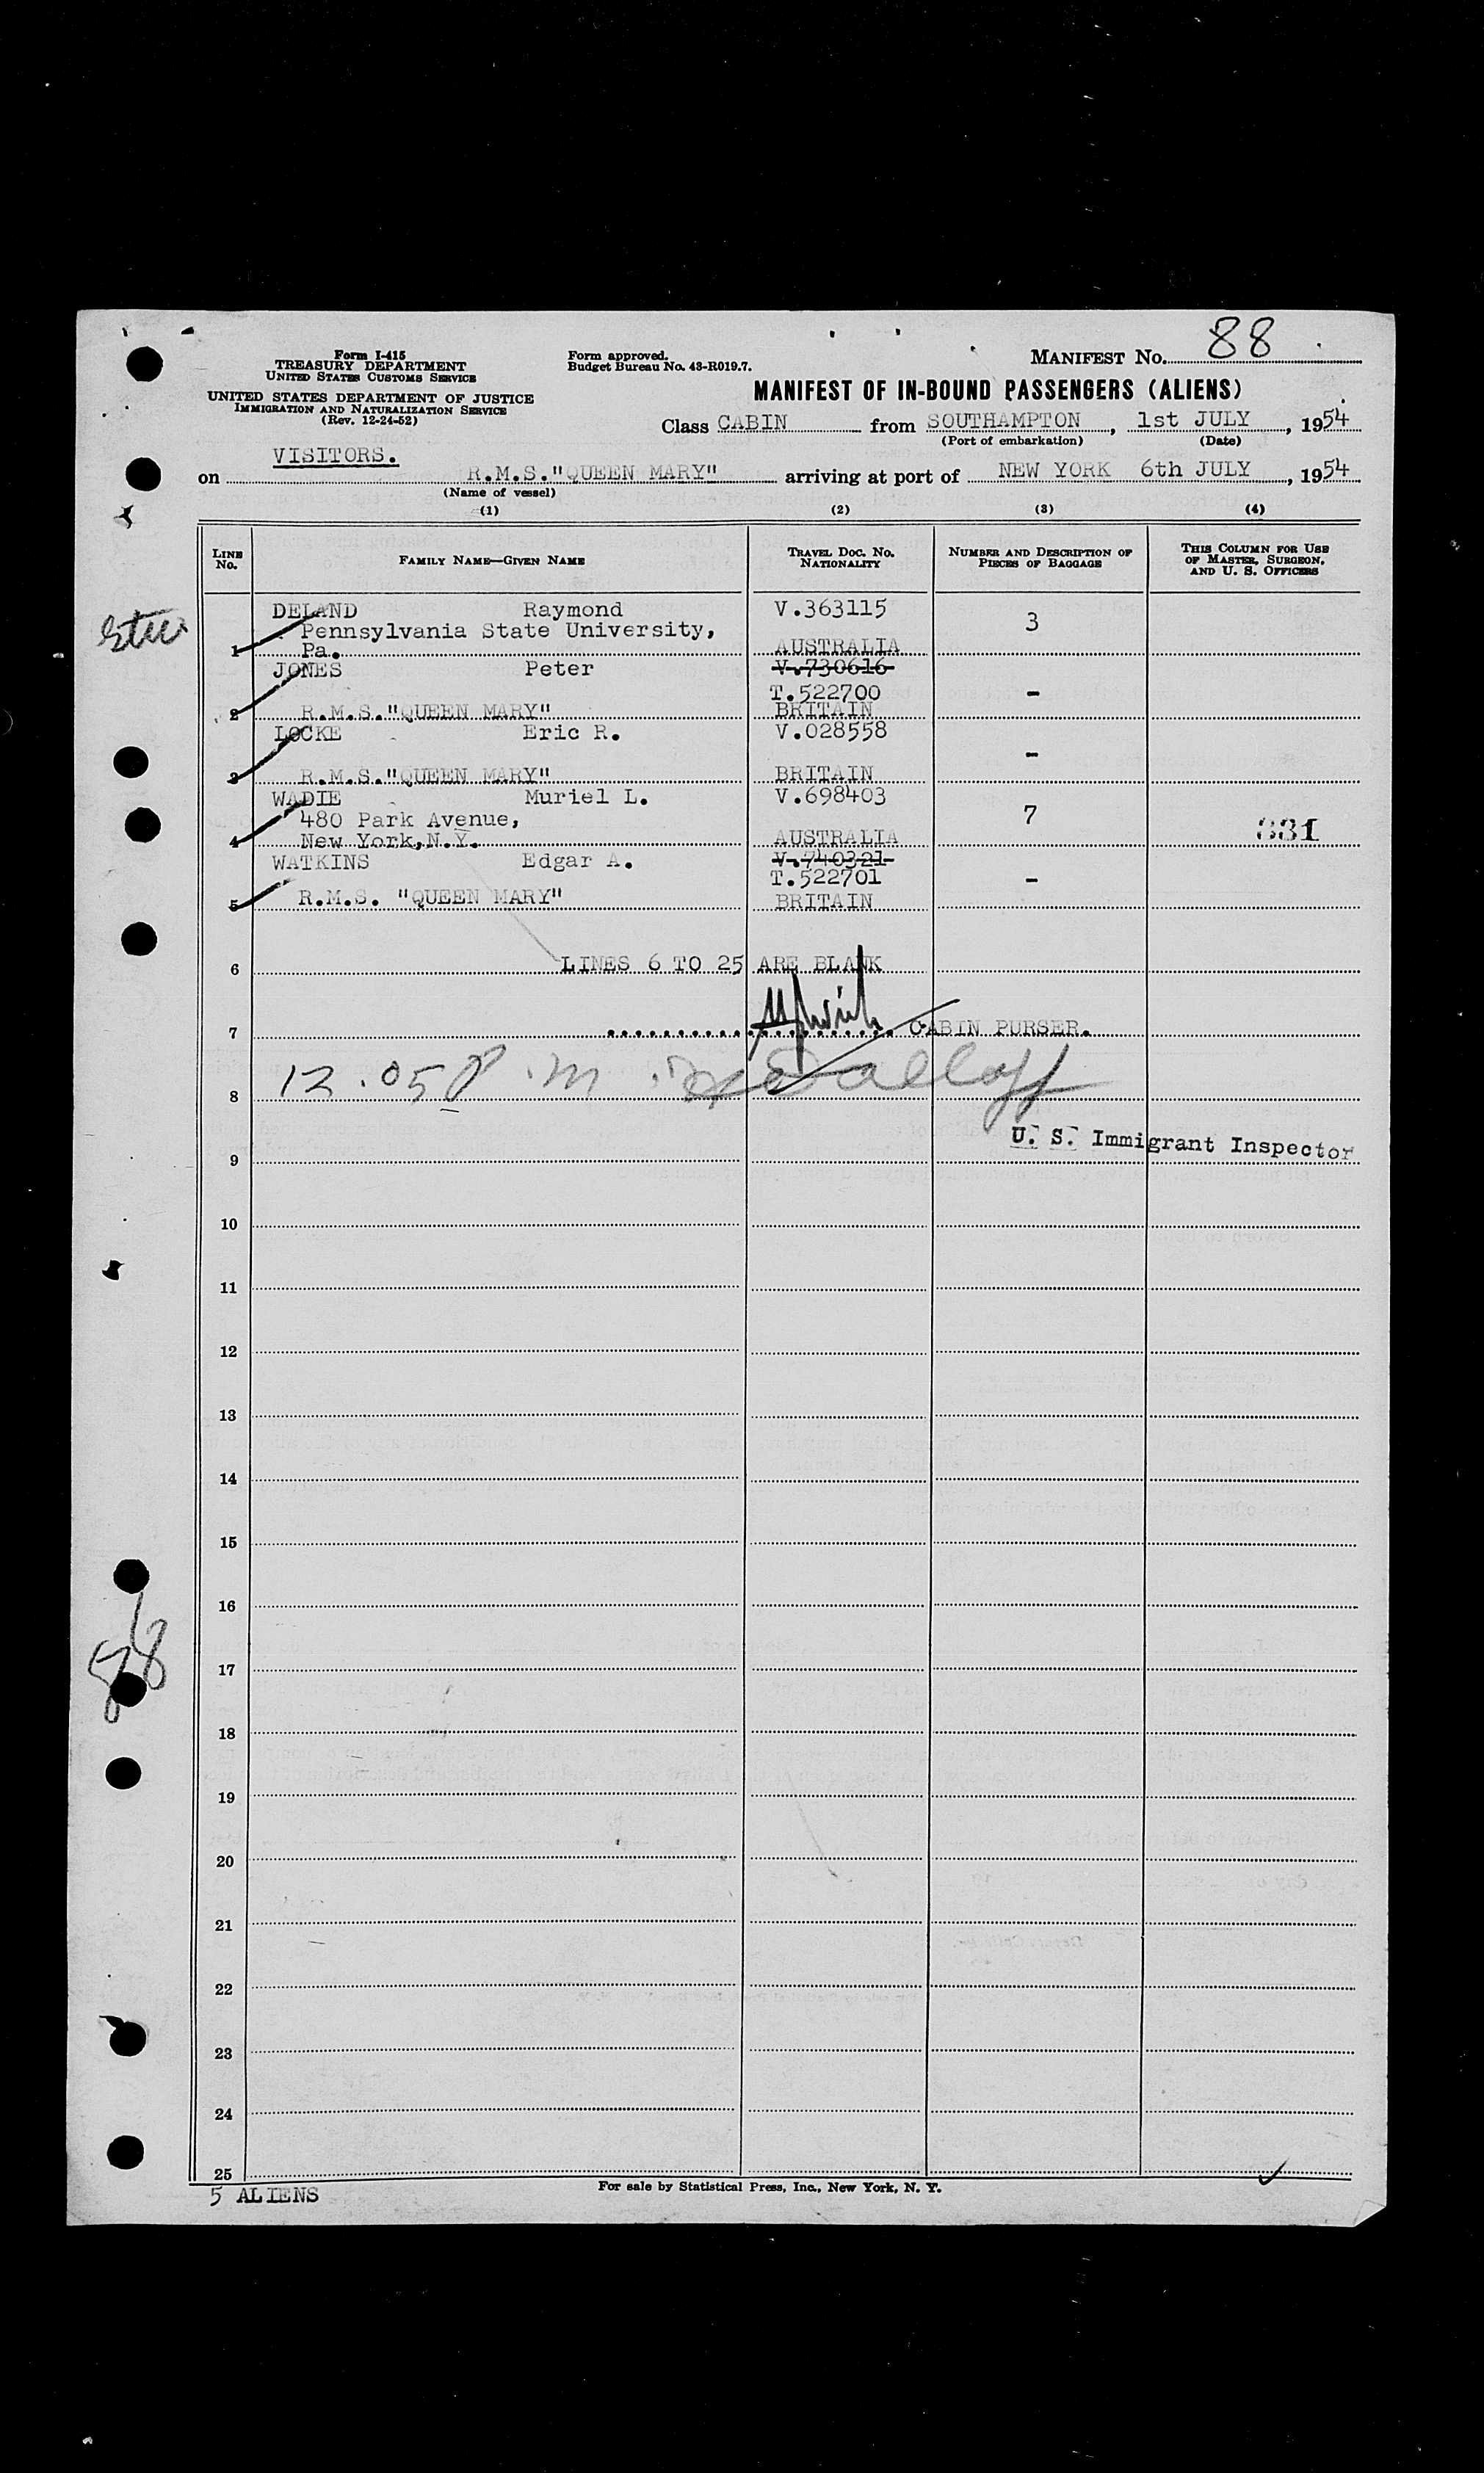 Form I-415
TREASURY DEPARTMENT
UNITED STATES CUSTOMS SERVICE
UNITED STATES DEPARTMENT OF JUSTICE
IMMIGRATION AND NATURALIZATION SERVICE
(Rev. 12-24-52)
Form approved.
Budget Bureau No. 43-R019.7.
MANIFEST No. 88
MANIFEST OF IN-BOUND PASSENGERS (ALIENS)
Class CABIN from SOUTHAMPTON, 1st JULY, 1954
(Port of embarkation) (Date)
VISITORS.
on R.M.S."QUEEN MARY" arriving at port of NEW YORK 6th JULY, 1954
(Name of vessel)
(1) (2) (3) (4)
LINE No. FAMILY NAME—GIVEN NAME TRAVEL DOC. No. NATIONALITY NUMBER AND DESCRIPTION OF PIECES OF BAGGAGE THIS COLUMN FOR USE OF MASTER, SURGEON, AND U. S. OFFICERS
DELAND Raymond V.363115 3
Pennsylvania State University,
1 Pa. AUSTRALIA
JONES Peter V.730616
T.522700 -
2 R.M.S."QUEEN MARY" BRITAIN
LOCKE Eric R. V.028558
-
3 R.M.S."QUEEN MARY" BRITAIN
WADIE Muriel L. V.698403
480 Park Avenue, 7
4 New York,N.Y. AUSTRALIA 331
WATKINS Edgar A. V.740321
T.522701 -
5 R.M.S. "QUEEN MARY" BRITAIN
6 LINES 6 TO 25 ARE BLANK
7 CABIN PURSER.
8 12.05 P.m.
U. S. Immigrant Inspector
9
10
11
12
13
14
15
16
17
18
19
20
21
22
23
24
25
5 ALIENS
For sale by Statistical Press, Inc., New York, N. Y.